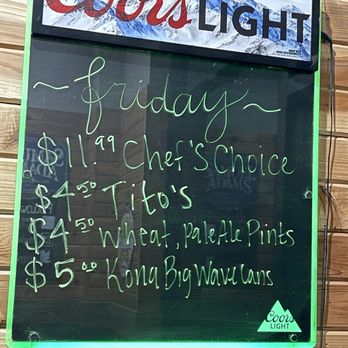 Coors LIGHT
~ friday ~
$11.99 Chef's Choice
$4.50 Tito's
$4.50 Wheat, Pale Ale Pints
$5.00 Kona Big Wave Cans
Coors
LIGHT